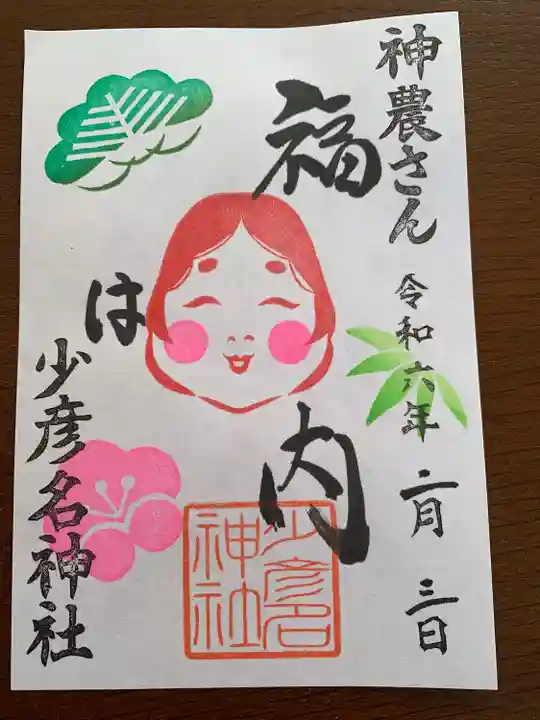 神農さん 令和六年 二月 三日
福は内
少彦名神社
少彦名
神社